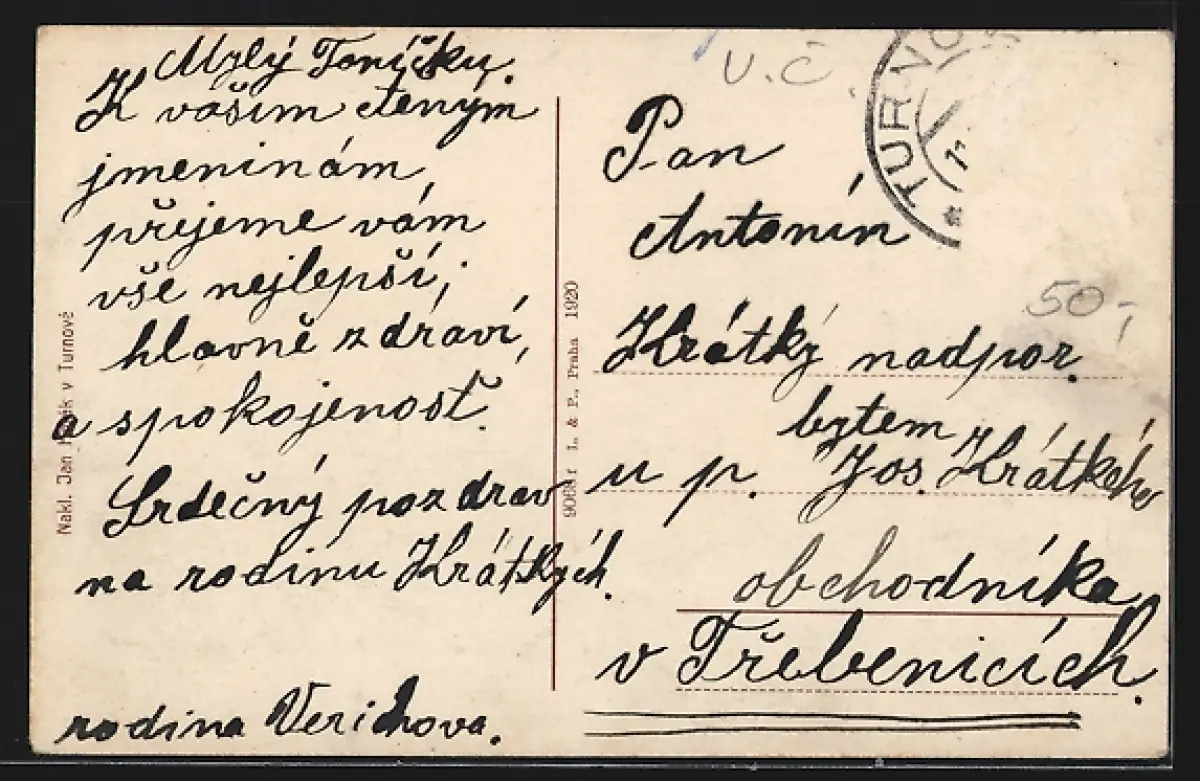 Mylý Toníčku.
K vašim ctěným
jmeninám
přejeme vám
vše nejlepší,
hlavně zdraví,
a spokojenosť.
Srdečný pozdrav
na rodinu Krátkých.
rodina
Nakl. Jan v Turnově
L. & P., Praha 1920
U.Č.
TURNO
Pan
Antonín
50,-
Krátký nadpor.
bytem
u p. Jos. Krátkého
obchodníka
v Třebenicích.